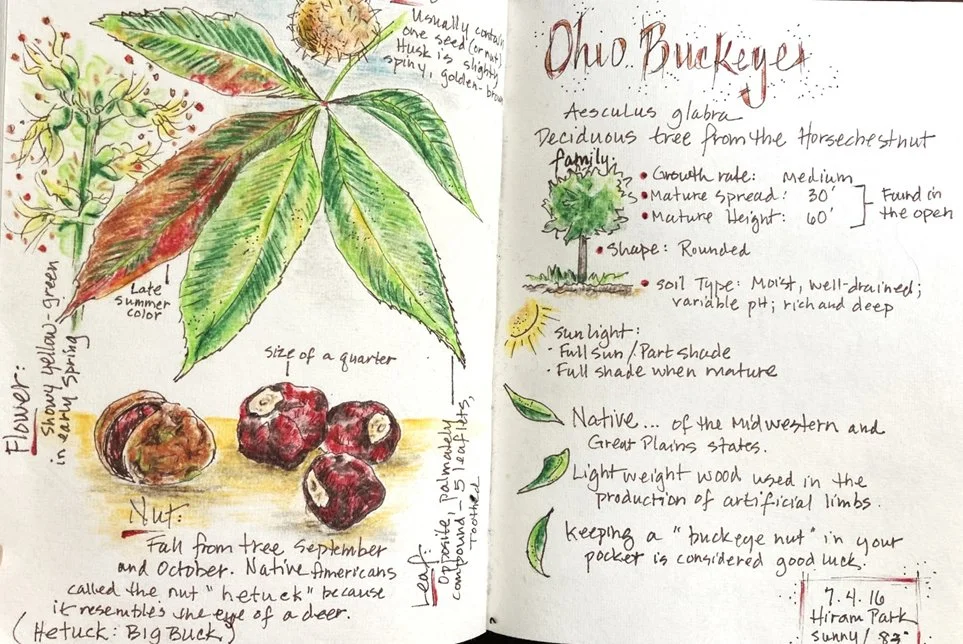 Usually contain
one seed (or nut)
Husk is slightly
spiny, golden-brown
Late
summer
color
Flower:
Showy yellow-green
in early Spring
size of a quarter
Leaf:
Opposite, palmately
compound - 5 leaflets,
Toothed
Nut:
Fall from tree September
and October. Native Americans
called the nut "hetuck" because
it resembles the eye of a deer.
(Hetuck: Big Buck)
Ohio Buckeye
Aesculus glabra
Deciduous tree from the Horsechestnut
family.
• Growth rate: Medium
• Mature Spread: 30'
• Mature Height: 60'
Found in
the open
• Shape: Rounded
• Soil Type: Moist, well-drained;
variable pH; rich and deep
sunlight:
· Full Sun/Part shade
· Full shade when mature
Native... of the Midwestern and
Great Plains states.
Light weight wood used in the
production of artificial limbs.
Keeping a "buckeye nut" in your
pocket is considered good luck.
7.4.16
Hiram Park
sunny/83